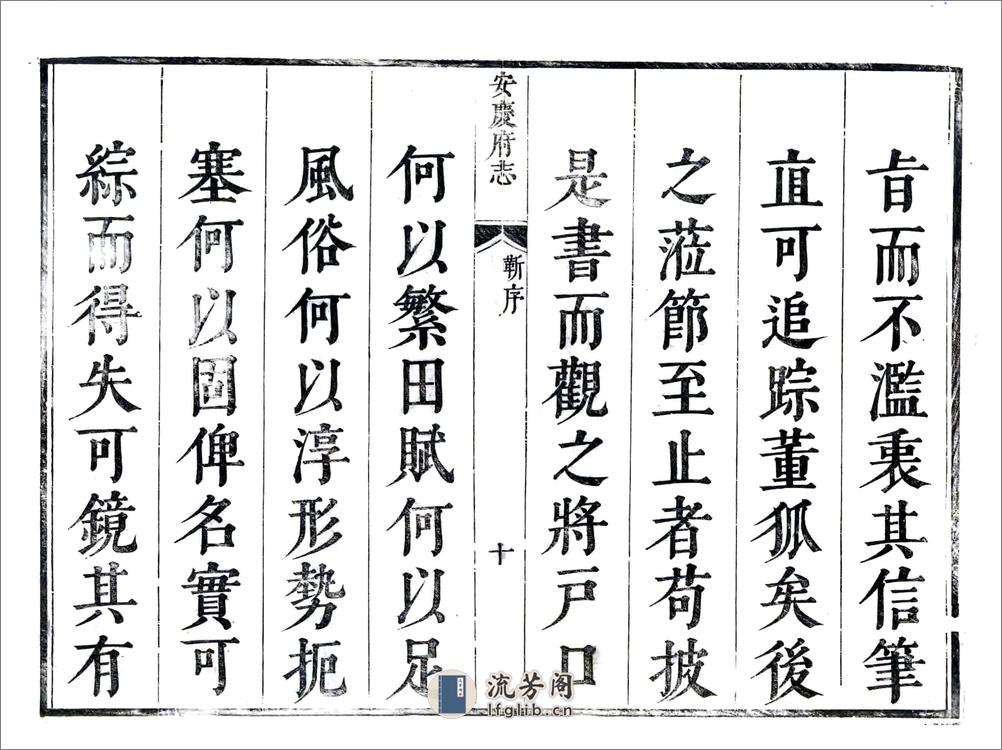 㫖而不濫裏其信筆
直可追踪董狐矣後
之蒞節至止者苟披
是書而觀之將戸口
安慶府志
靳序
十
何以繁田賦何以足
風俗何以淳形勢扼
塞何以固俾名實可
綜而得失可鏡其有
流芳阁
lfglib.cn